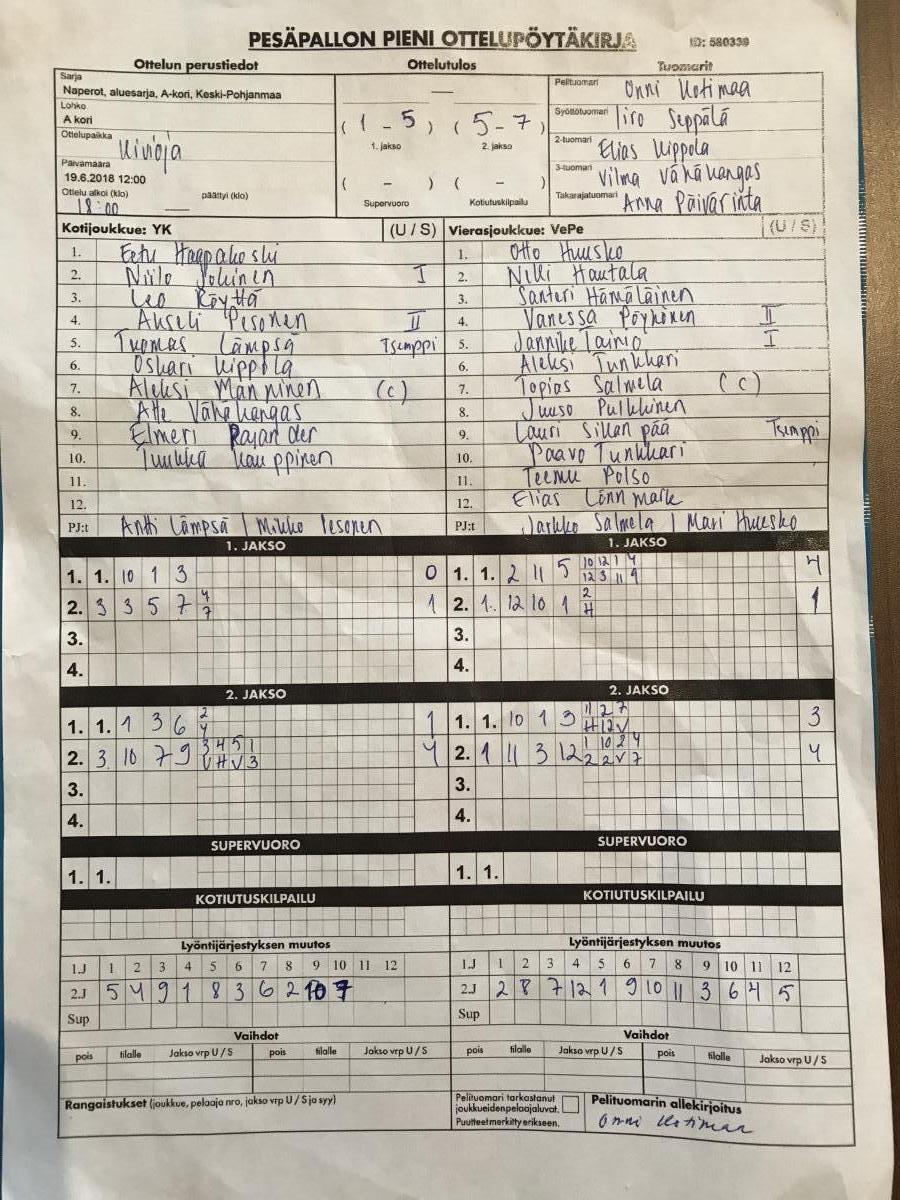 PESÄPALLON PIENI OTTELUPÖYTÄKIRJA ID: 580339
Ottelun perustiedot Ottelutulos Tuomarit
Sarja
Naperot, aluesarja, A-kori, Keski-Pohjanmaa
Lohko
A kori
Ottelupaikka
Päivämäärä
19.6.2018 12:00
Ottelu alkoi (klo) päättyi (klo)
18:00
—
( 1 - 5 ) ( 5 - 7 )
1. jakso 2. jakso
( - ) ( - )
Supervuoro Kotiutuskilpailu
Pelituomari Onni Kotimaa
Syöttötuomari Iiro Seppälä
2-tuomari Elias Kippola
3-tuomari Vilma Vähäkangas
Takarajatuomari Anna Päivärinta
Kotijoukkue: YK (U / S) Vierasjoukkue: VePe (U / S)
1. Eetu Haapakoski 1. Otto Huusko
2. Niilo Jokinen I 2. Niki Hautala
3. Leo Köyttä 3. Santeri Hämäläinen
4. Akseli Pesonen II 4. Vanessa Pöyhönen II
5. Tuomas Lämpsä Tsemppi 5. Jannike Tainio I
6. Oskari Kippola 6. Aleksi Tunkkari
7. Aleksi Manninen (c) 7. Topias Salmela (c)
8. Atte Vähäkangas 8. Juuso Pulkkinen
9. Elmeri Rajander 9. Lauri Sikanpää Tsemppi
10. Tuukka Kauppinen 10. Paavo Tunkkari
11. 11. Teemu Polso
12. 12. Elias Lönnmark
PJ:t Antti Lämpsä / Mikko Pesonen PJ:t Jarkko Salmela / Mari Huusko
1. JAKSO 1. JAKSO
1. 1. 10 1 3 0 1. 1. 2 11 5 10 12 1 4 4
12 3 11 9
2. 3 3 5 7 4 1 2. 1. 12 10 1 2 1
7 H
3. 3.
4. 4.
2. JAKSO 2. JAKSO
1. 1. 1 3 6 2 1 1. 1. 10 1 9 11 2 7 3
4 H 12 V
2. 3 10 7 9 3 4 5 1 4 2. 1 11 3 12 1 10 2 4 4
V H V 3 2 2 V 7
3. 3.
4. 4.
SUPERVUORO SUPERVUORO
1. 1. 1. 1.
KOTIUTUSKILPAILU KOTIUTUSKILPAILU
Lyöntijärjestyksen muutos Lyöntijärjestyksen muutos
1.J 1 2 3 4 5 6 7 8 9 10 11 12 1.J 1 2 3 4 5 6 7 8 9 10 11 12
2.J 5 4 9 1 8 3 6 2 10 7 2.J 2 8 7 12 1 9 10 11 3 6 4 5
Sup Sup
Vaihdot Vaihdot
pois tilalle Jakso vrp U / S pois tilalle Jakso vrp U / S pois tilalle Jakso vrp U / S pois tilalle Jakso vrp U / S
Rangaistukset (joukkue, pelaaja nro, jakso vrp U / S ja syy)
Pelituomari tarkastanut
joukkueiden pelaajaluvat.
Puutteet merkitty erikseen.
Pelituomarin allekirjoitus
Onni Kotimaa